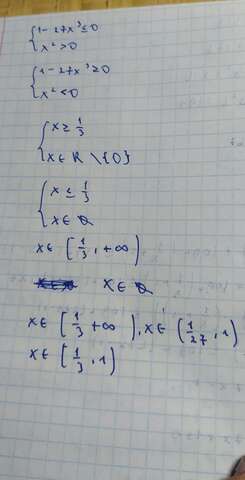 {1 - 27x³ ≤ 0
{x² > 0
{1 - 27x³ ≥ 0
{x² < 0
{x ≥ 1/3
{x ∈ R \ {0}
{x ≤ 1/3
{x ∈ ∅
x ∈ [1/3, +∞)
x ∈ ∅
x ∈ [1/3 +∞), x ∈ (1/27, 1)
x ∈ [1/3, 1)